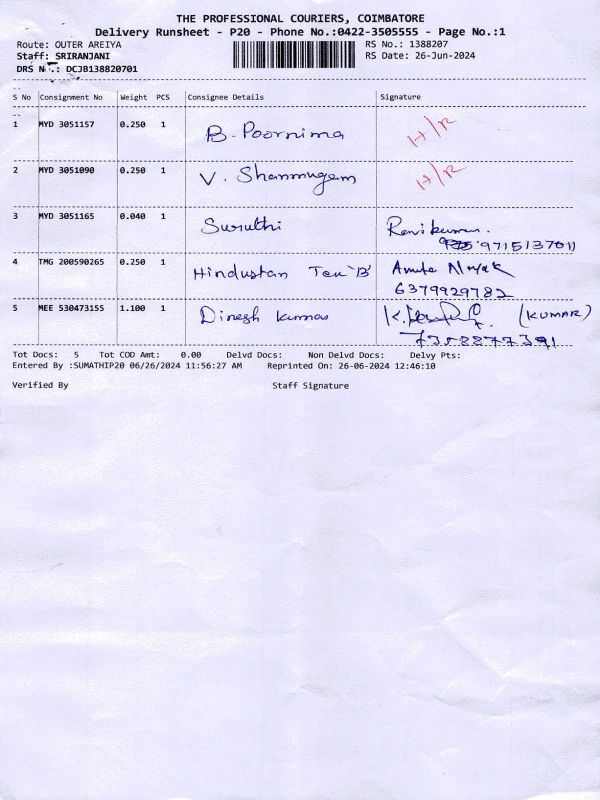 THE PROFESSIONAL COURIERS, COIMBATORE
Delivery Runsheet - P20 - Phone No.:0422-3505555 - Page No.:1
Route: OUTER AREIYA RS No.: 1388207
Staff: SRIRANJANI RS Date: 26-Jun-2024
DRS No.: DCJB138820701
S No Consignment No Weight PCS Consignee Details Signature
1 MYD 3051157 0.250 1 B. Poornima H/R
2 MYD 3051090 0.250 1 V. Shanmugam H/R
3 MYD 3051165 0.040 1 Suruthi Ravikumar.
9715137011
4 TMG 200590265 0.250 1 Hindustan Tea 'B' Amuta Nayak
6379929782
5 MEE 530473155 1.100 1 Dinesh Kumar K. (KUMAR)
7358877391
Tot Docs: 5 Tot COD Amt: 0.00 Delvd Docs: Non Delvd Docs: Delvy Pts:
Entered By :SUMATHIP20 06/26/2024 11:56:27 AM Reprinted On: 26-06-2024 12:46:10
Verified By Staff Signature